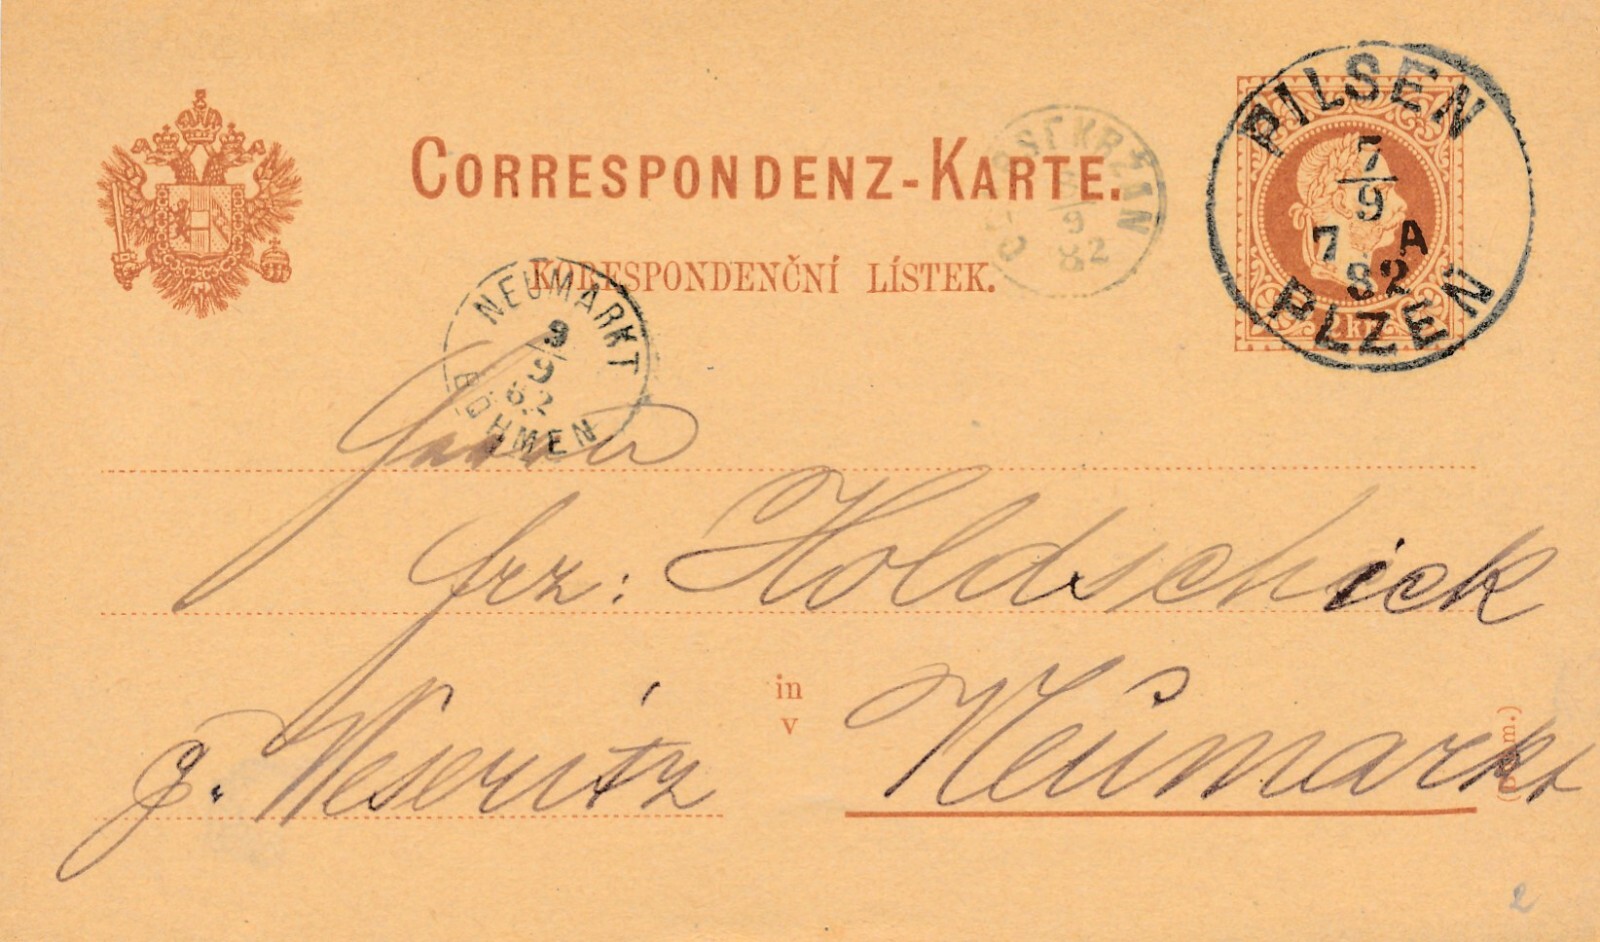 CORRESPONDENZ-KARTE.
KORRESPONDENČNÍ LÍSTEK.
PILSEN
7/9
7 A
82
PLZEN
2 kr.
9/9
82
NEUMARKT
9/9
82
BÖHMEN
Herrn
frz: Holdschick
in
v
g. Weseritz
Neumarkt
(Böhm.)
2